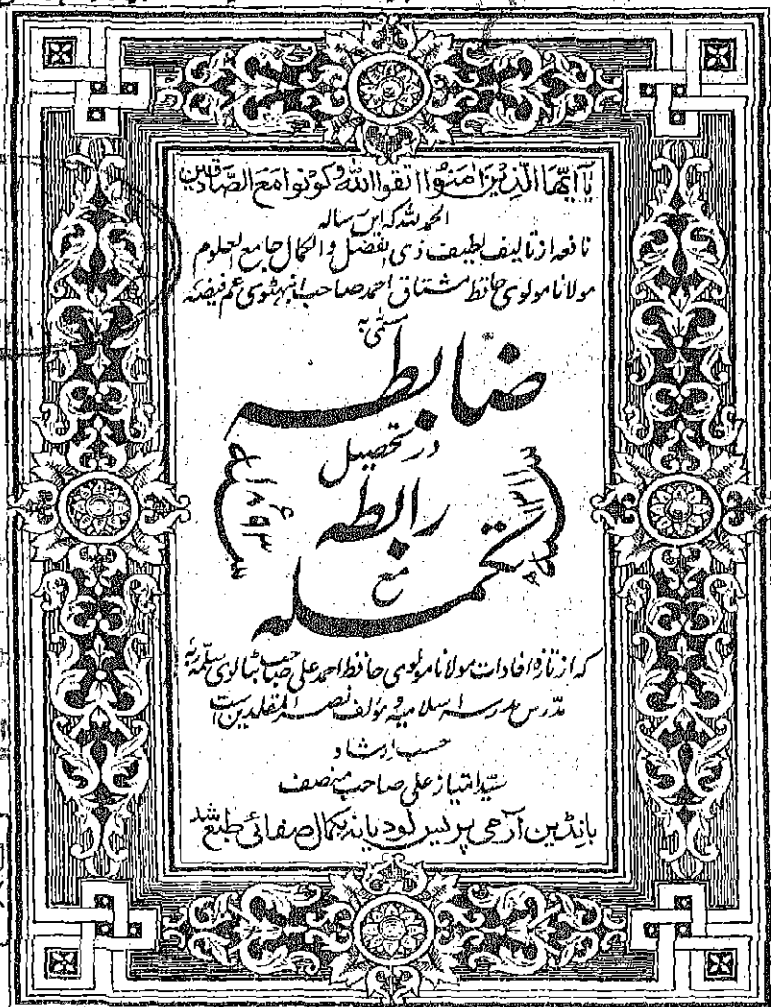 یَآ اَیُّهَا الَّذِیْنَ اٰمَنُوا اتَّقُوا اللّٰهَ وَ کُوْنُوْا مَعَ الصَّادِقِیْنَ
الحمد للہ کہ این رسالہ
نافعہ از تالیف لطیف ذی الفضل والکمال جامع العلوم
مولانا مولوی حافظ مشتاق احمد صاحب انبہٹوی عم فیضہ
مسمی بہ
ضابطہ
در تحصیل
رابطہ
مع
تکملہ
کہ از تازہ افادات مولانا مولوی حافظ احمد علی صاحب بٹالوی سلمہ ربہ
مدرس مدرسہ اسلامیہ و مؤلف نصر المقلدین است
حسب ارشاد
سید امتیاز علی صاحب منصف
بانڈین آرمی پریس لودیانہ بکمال صفائی طبع شد